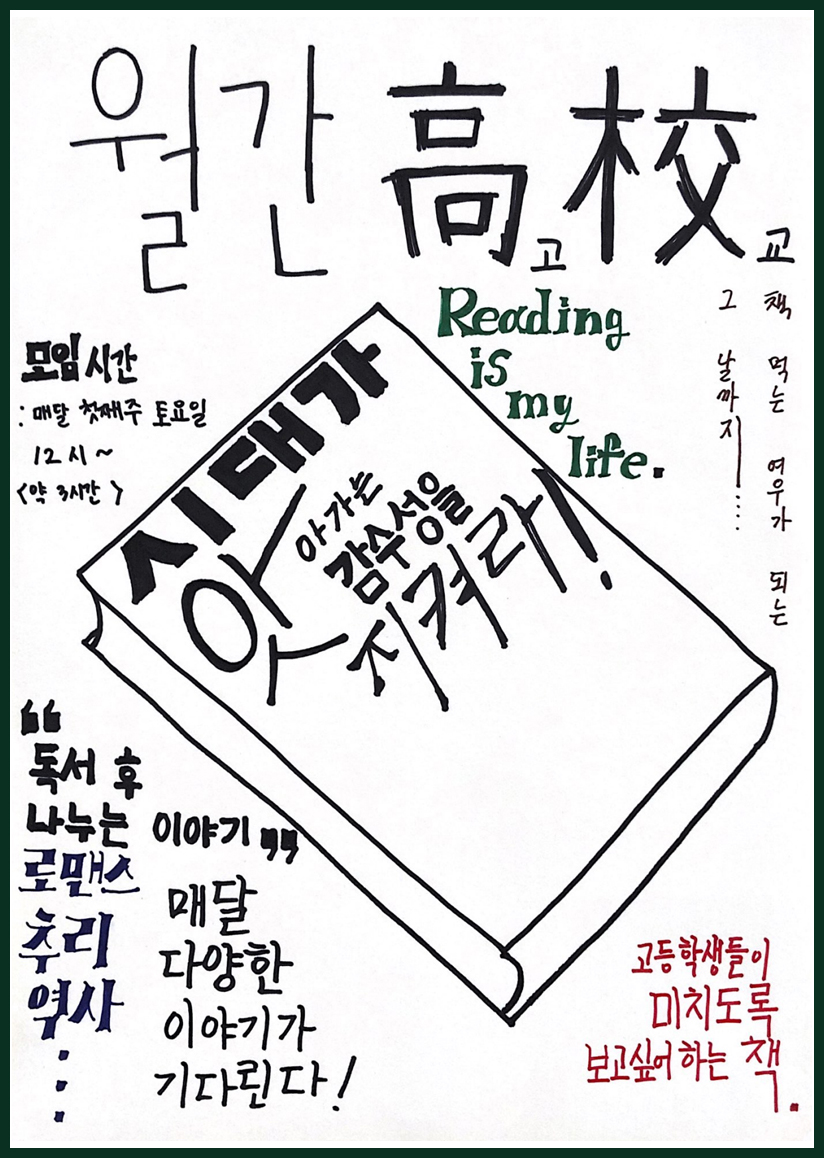 월간 高고 校교
Reading
is
my
life.
책 먹는 여우가 되는
그 날까지.....
모임 시간
: 매달 첫째주 토요일
12시 ~
<약 3시간>
시대가
앗아가는
감수성을
지켜라!
"독서 후
나누는 이야기"
로맨스
추리
역사
매달
다양한
이야기가
기다린다!
고등학생들이
미치도록
보고싶어 하는 책.